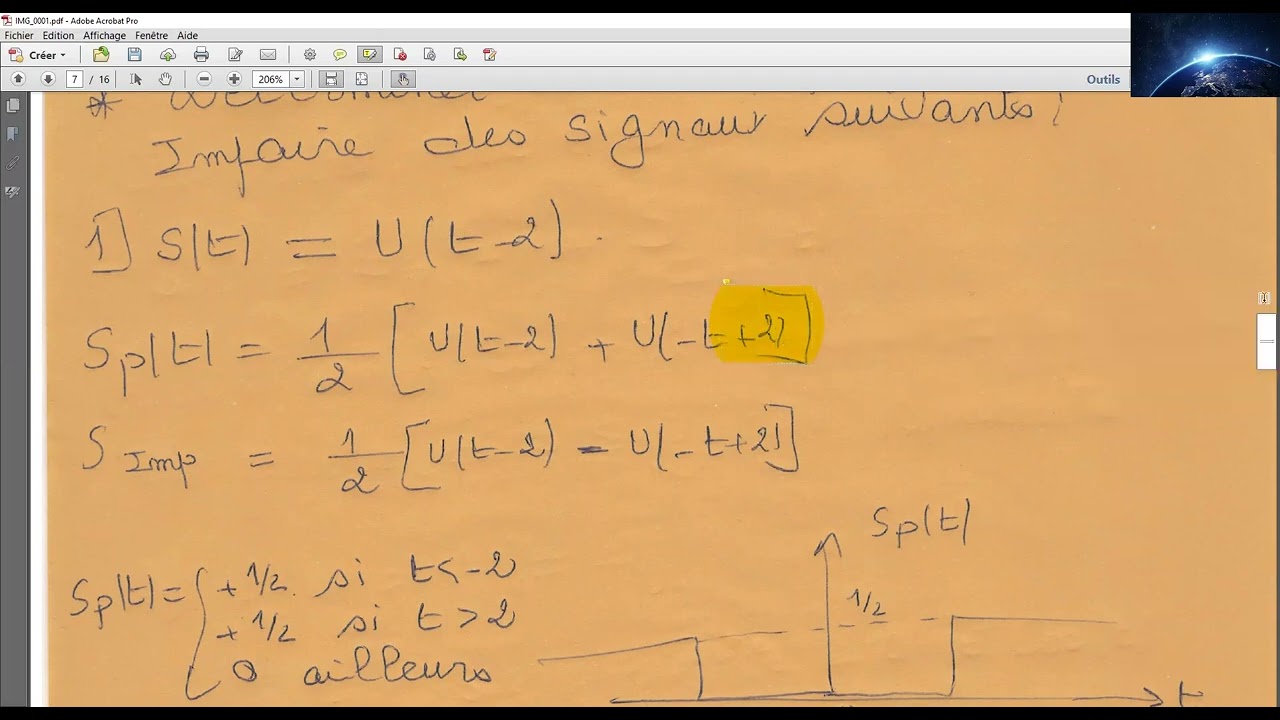 IMG_0001.pdf - Adobe Acrobat Pro
Fichier Edition Affichage Fenêtre Aide
Créer
7 / 16 206% Outils
Impaire des signaux suivants:
1] S(t) = U(t-2).
Sp(t) = 1/2 [U(t-2) + U(-t+2)]
S Imp = 1/2 [U(t-2) - U(-t+2)]
Sp(t)
Sp(t) = { + 1/2. si t < -2
+ 1/2 si t > 2
0 ailleurs
1/2
t